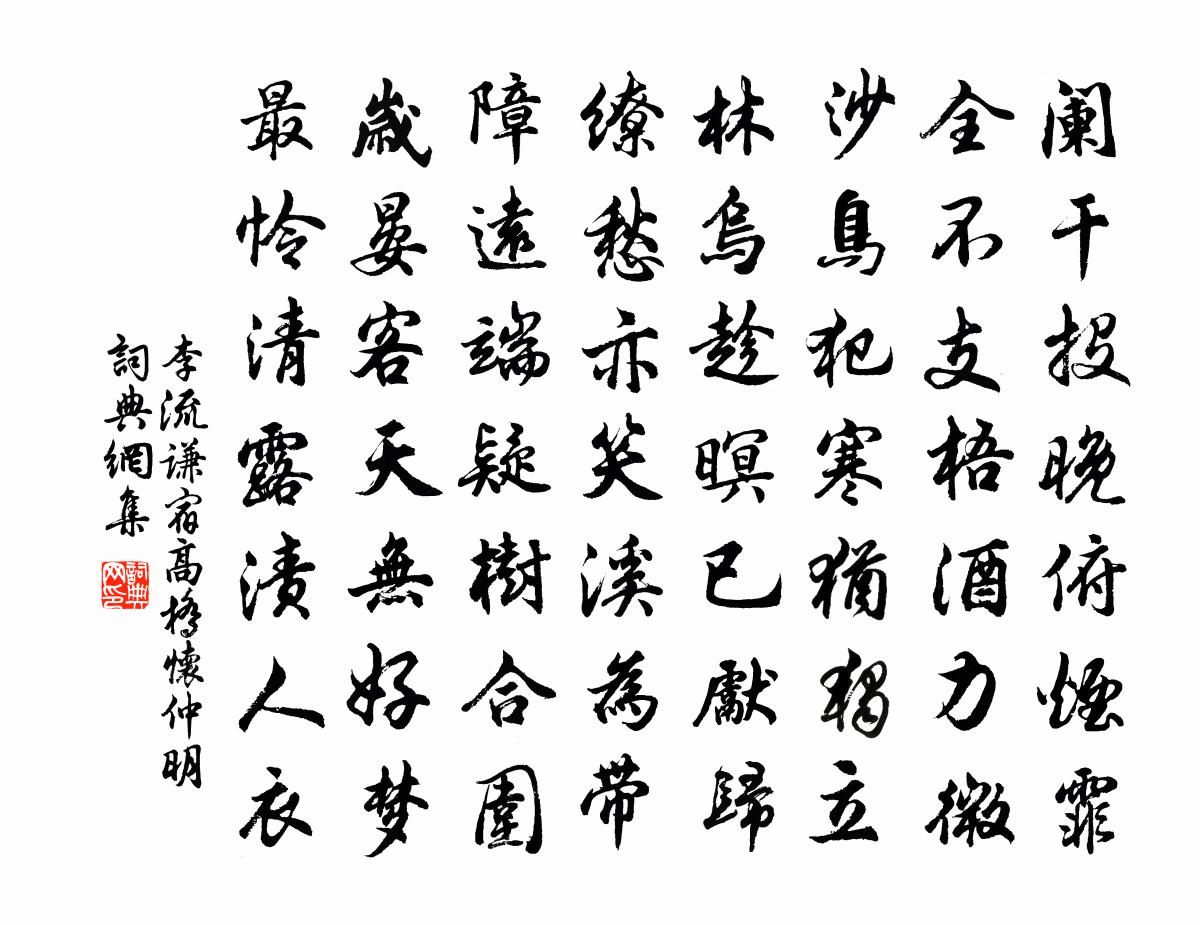 阑干投晚俯煙霏
全不支梧酒力微
沙鳥犯寒猶獨立
林烏趁暝已獻歸
繚愁亦笑溪為帶
障遠端疑樹合圍
歲晏客天無好梦
最怜清露漬人衣
李流谦宿高橋懷仲明
詞典網集
詞典网印